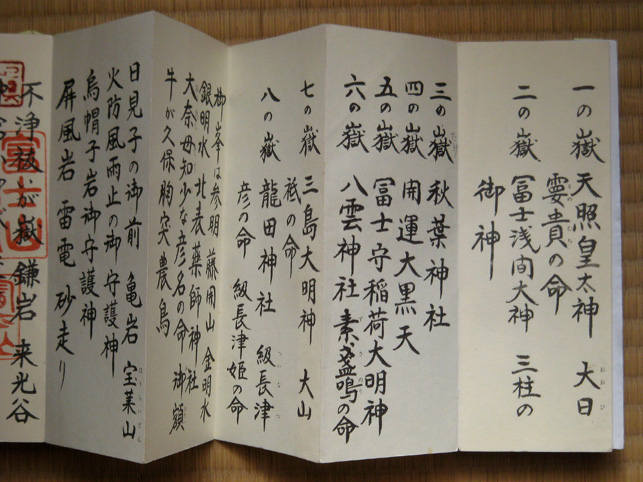 一の嶽 天照皇太神 大日
孁貴の命
二の嶽 冨士浅間大神 三柱の
御神
三の嶽 秋葉神社
四の嶽 開運大黒天
五の嶽 冨士守稲荷大明神
六の嶽 八雲神社 素盞鳴の命
七の嶽 三島大明神 大山
祇の命
八の嶽 龍田神社 級長津
彦の命 級長津姫の命
御峯は参明 藤開山 金明水
銀明水 北表薬師神社
大奈母知少な彦名の命 御額
牛が久保 胸突 農鳥
日見子の御前 亀岩 宝莱山
火防風雨止の御守護神
烏帽子岩御守護神
屏風岩 雷電 砂走り
不浄祓いが嶽 鎌岩 来光谷